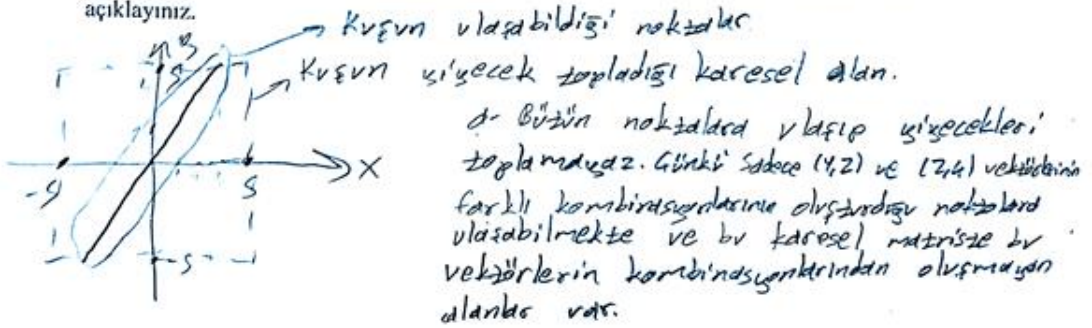 açıklayınız.
Kuşun ulaşabildiği noktalar
Kuşun yiyecek topladığı karesel alan.
y
5
-5
5
X
-5
d- Bütün noktalara ulaşıp yiyecekleri
toplamayaz. Çünki sadece (1,2) ve (2,4) vektörlerinin
farklı kombinasyonlarının oluşturduğu noktalara
ulaşabilmekte ve bu karesel matriste bu
vektörlerin kombinasyonlarından oluşmayan
alanlar var.